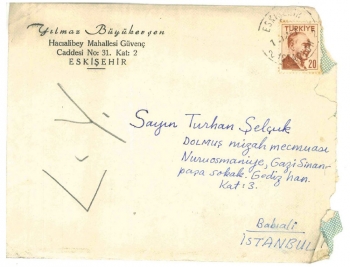 Yılmaz Büyükerşen
Hacıalibey Mahallesi Güvenç
Caddesi No: 31. Kat: 2
ESKİŞEHİR
TÜRKİYE
20
Sayın Turhan Selçuk
DOLMUŞ mizah mecmuası
Nuruosmaniye, Gazi Sinan-
paşa sokak. Gediz han.
Kat: 3.
Babıali
İSTANBUL